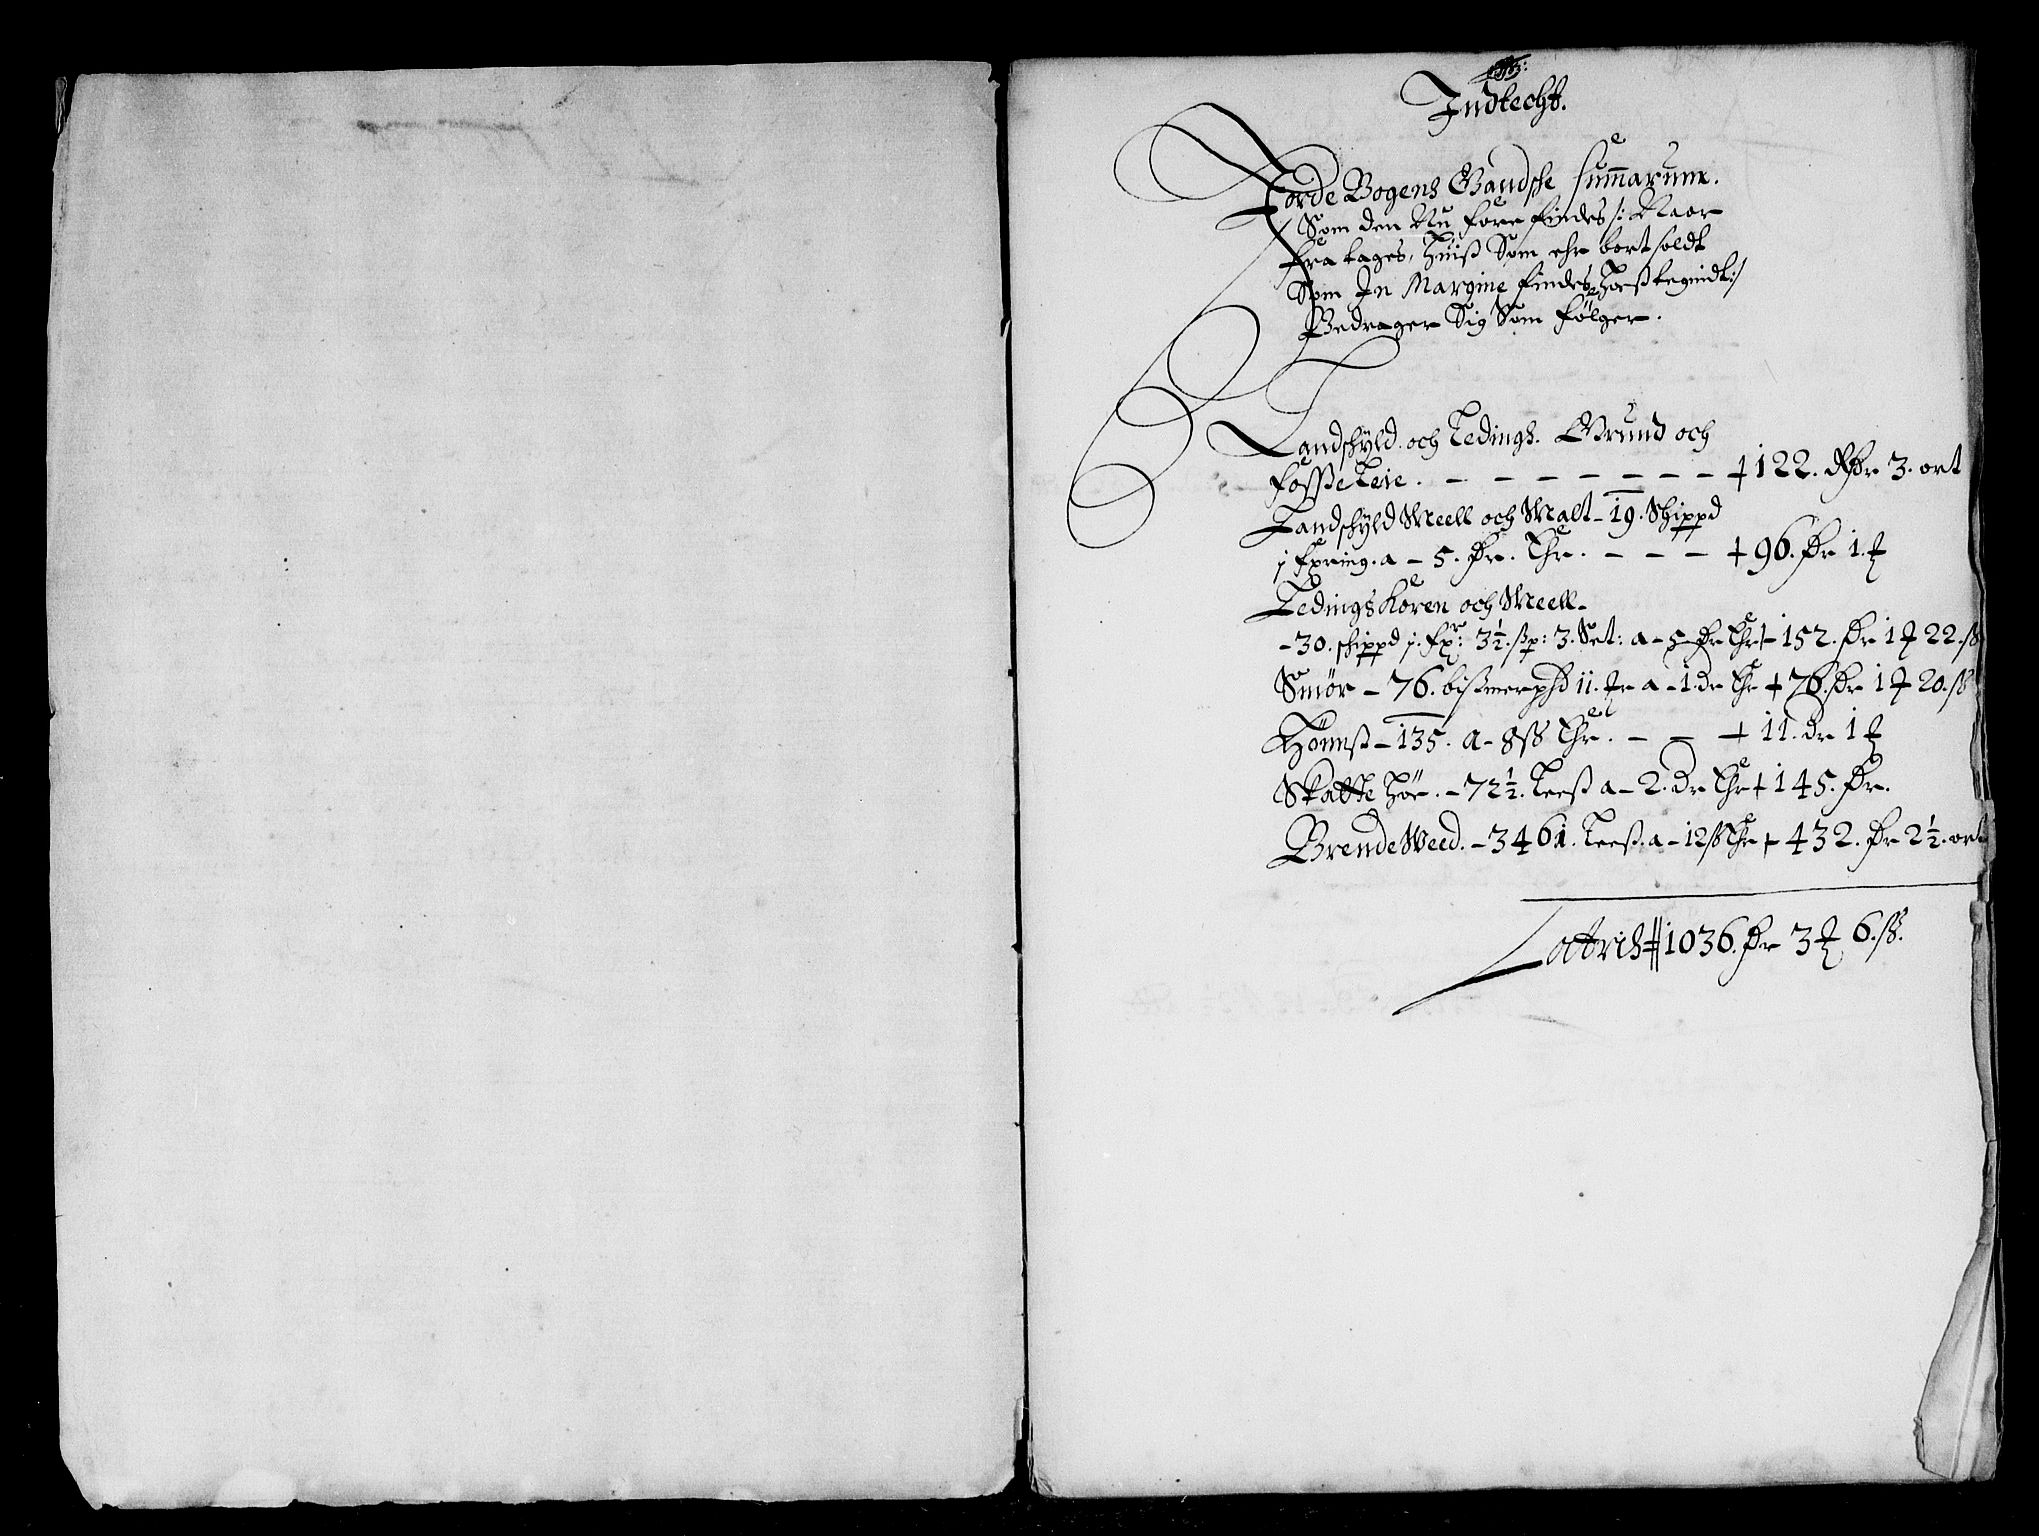 Indtecht.
Jorde Bogens Gandsche Summarum.
Som den Nu fore findes /: Naar
fra tages, huiss Som ehr bort soldt
Som In Margine findes hoess tegnidt :/
Bedrager Sig Som følger.
Landschyld och Leding. Grund och
fosse Leie. - - - - - - - + 122. dr 3. ort
Landschyld Meell och Malt - 19. Schippd
j fxring. a - 5. dr. Thr. - - - + 96. dr 1. #
Ledings Koren och Meell -
- 30. schippd j. fxr: 3½. ssp: 3. Set: a - 5 dr Thr + 152. dr 1 # 22. ss
Smör - 76. bissmerpd 11. # a - 1. dr Thr + 76. dr 1 # 20. ss
Hönnss - 135. a - 8 ss Thr. - - + 11. dr 1 #
Skatte höe. - 72½. Less a - 2. dr Thr + 145. dr.
Brende Weed. - 3461. Less. a - 12 ss Thr + 432. dr 2½. ort
Lattris # 1036. dr 3 # 6. ss.